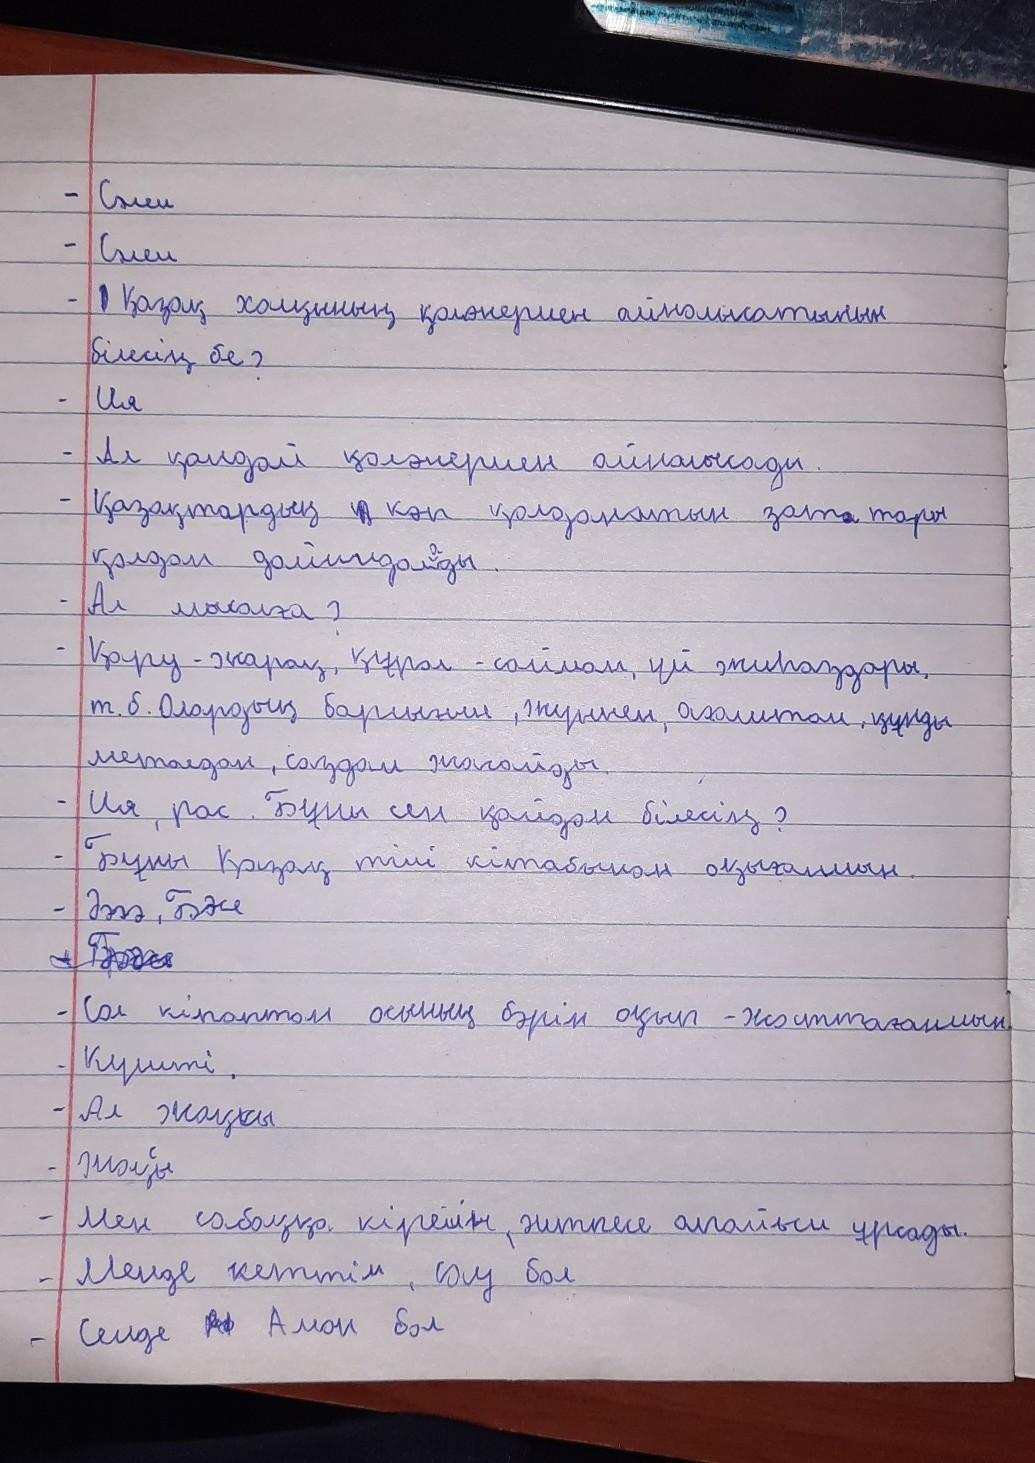 - Сәлем
- Сәлем
- Қазақ халқының қолөнермен айналысатынын
білесің бе?
- Ия
- Ал қандай қолөнермен айналысады.
- Қазақтардың көп қолданатын заттары
қолдан дайындалады.
- Ал мысалға?
- Қару-жарақ, құрал-сайман, үй жиһаздары,
т.б. Олардың барлығын, жүннен, ағаштан, құнды
металдан, саздан жасайды.
- Ия, рас. Бұны сен қайдан білесің?
- Бұны Қазақ тілі кітабынан оқығанмын.
- Әәә, Бәсе
- Сол кітаптан осының бәрін оқып-жаттағанмын
- Күшті.
- Ал жақсы
- Жақсы
- Мен сабаққа кірейін, әйтпесе апайы ұрсады.
- Менде кеттім, сау бол
- Сенде Аман бол